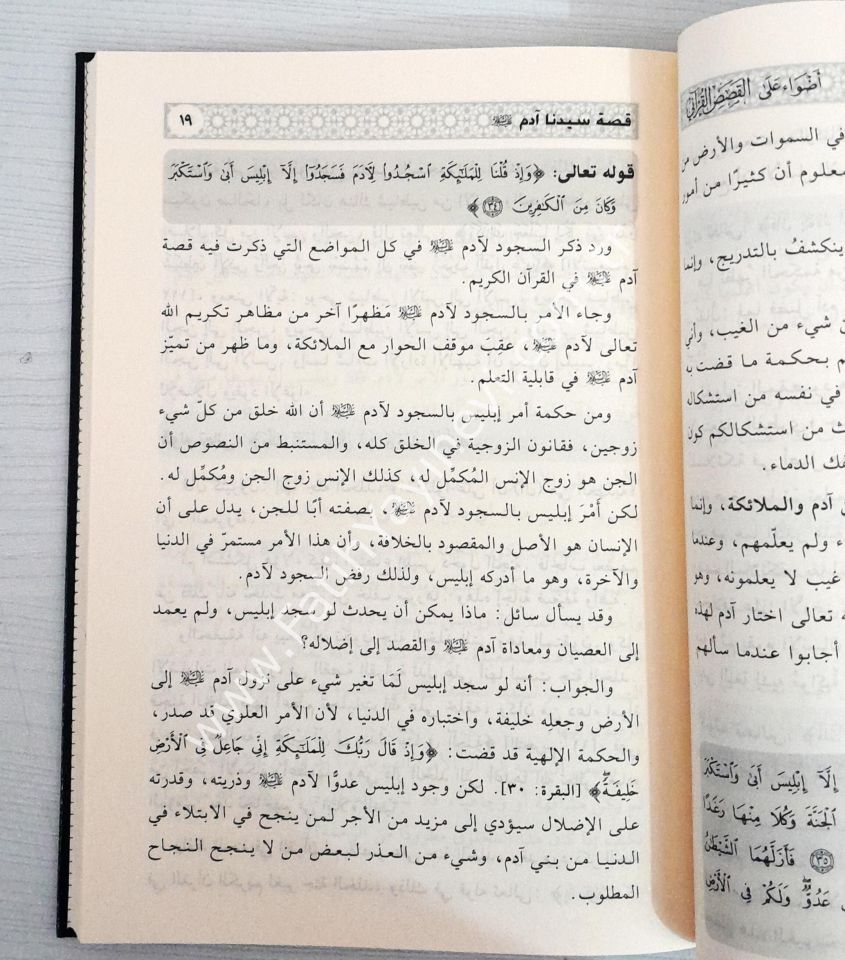 أضواء على القصص القرآني
في السموات والأرض من
معلوم أن كثيرًا من أمور
ينكشفُ بالتدريج، وإنما
ن شيء من الغيب، وأني
م بحكمة ما قضت به
في نفسه من استشكاله
ث من استشكالكم كون
فك الدماء.
آدم والملائكة، وإنما
ء ولم يعلّمهم، وعندما
غيب لا يعلمونه، وهو
ه تعالى اختار آدم لهذه
أجابوا عندما سألهم
إِلَّآ إِبْلِيسَ أَبَىٰ وَٱسْتَكْبَرَ
ٱلْجَنَّةَ وَكُلَا مِنْهَا رَغَدًا
٣٥ فَأَزَلَّهُمَا ٱلشَّيْطَٰنُ
عَدُوٌّۖ وَلَكُمْ فِى ٱلْأَرْضِ
قصة سيدنا آدم عليه السلام ١٩
قوله تعالى: ﴿وَإِذْ قُلْنَا لِلْمَلَٰٓئِكَةِ ٱسْجُدُوا۟ لِءَادَمَ فَسَجَدُوٓا۟ إِلَّآ إِبْلِيسَ أَبَىٰ وَٱسْتَكْبَرَ
وَكَانَ مِنَ ٱلْكَٰفِرِينَ ٣٤﴾
ورد ذكر السجود لآدم عليه السلام في كل المواضع التي ذكرت فيه قصة
آدم عليه السلام في القرآن الكريم.
وجاء الأمر بالسجود لآدم عليه السلام مَظهرًا آخر من مظاهر تكريم الله
تعالى لآدم عليه السلام، عقِبَ موقف الحوار مع الملائكة، وما ظهر من تميّز
آدم عليه السلام في قابلية التعلم.
ومن حكمة أمر إبليس بالسجود لآدم عليه السلام أن الله خلق من كلّ شيء
زوجين، فقانون الزوجية في الخلق كله، والمستنبط من النصوص أن
الجن هو زوج الإنس المُكمِّل له، كذلك الإنس زوج الجن ومُكمِّل له.
لكن أَمْرَ إبليس بالسجود لآدم عليه السلام، بصفته أبًا للجن، يدل على أن
الإنسان هو الأصل والمقصود بالخلافة، وأن هذا الأمر مستمرّ في الدنيا
والآخرة، وهو ما أدركه إبليس، ولذلك رفض السجود لآدم.
وقد يسأل سائل: ماذا يمكن أن يحدث لو سجد إبليس، ولم يعمد
إلى العصيان ومعاداة آدم عليه السلام والقصد إلى إضلاله؟
والجواب: أنه لو سجد إبليس لَمَا تغير شيء على نزول آدم عليه السلام إلى
الأرض وجعلِه خليفة، واختباره في الدنيا، لأن الأمر العلوي قد صدر،
والحكمة الإلهية قد قضت: ﴿وَإِذْ قَالَ رَبُّكَ لِلْمَلَٰٓئِكَةِ إِنِّى جَاعِلٌ فِى ٱلْأَرْضِ
خَلِيفَةً﴾ [البقرة: ٣٠]. لكن وجود إبليس عدوًّا لآدم عليه السلام وذريته، وقدرته
على الإضلال سيؤدي إلى مزيد من الأجر لمن ينجح في الابتلاء في
الدنيا من بني آدم، وشيء من العذر لبعض من لا ينجح النجاح
المطلوب.